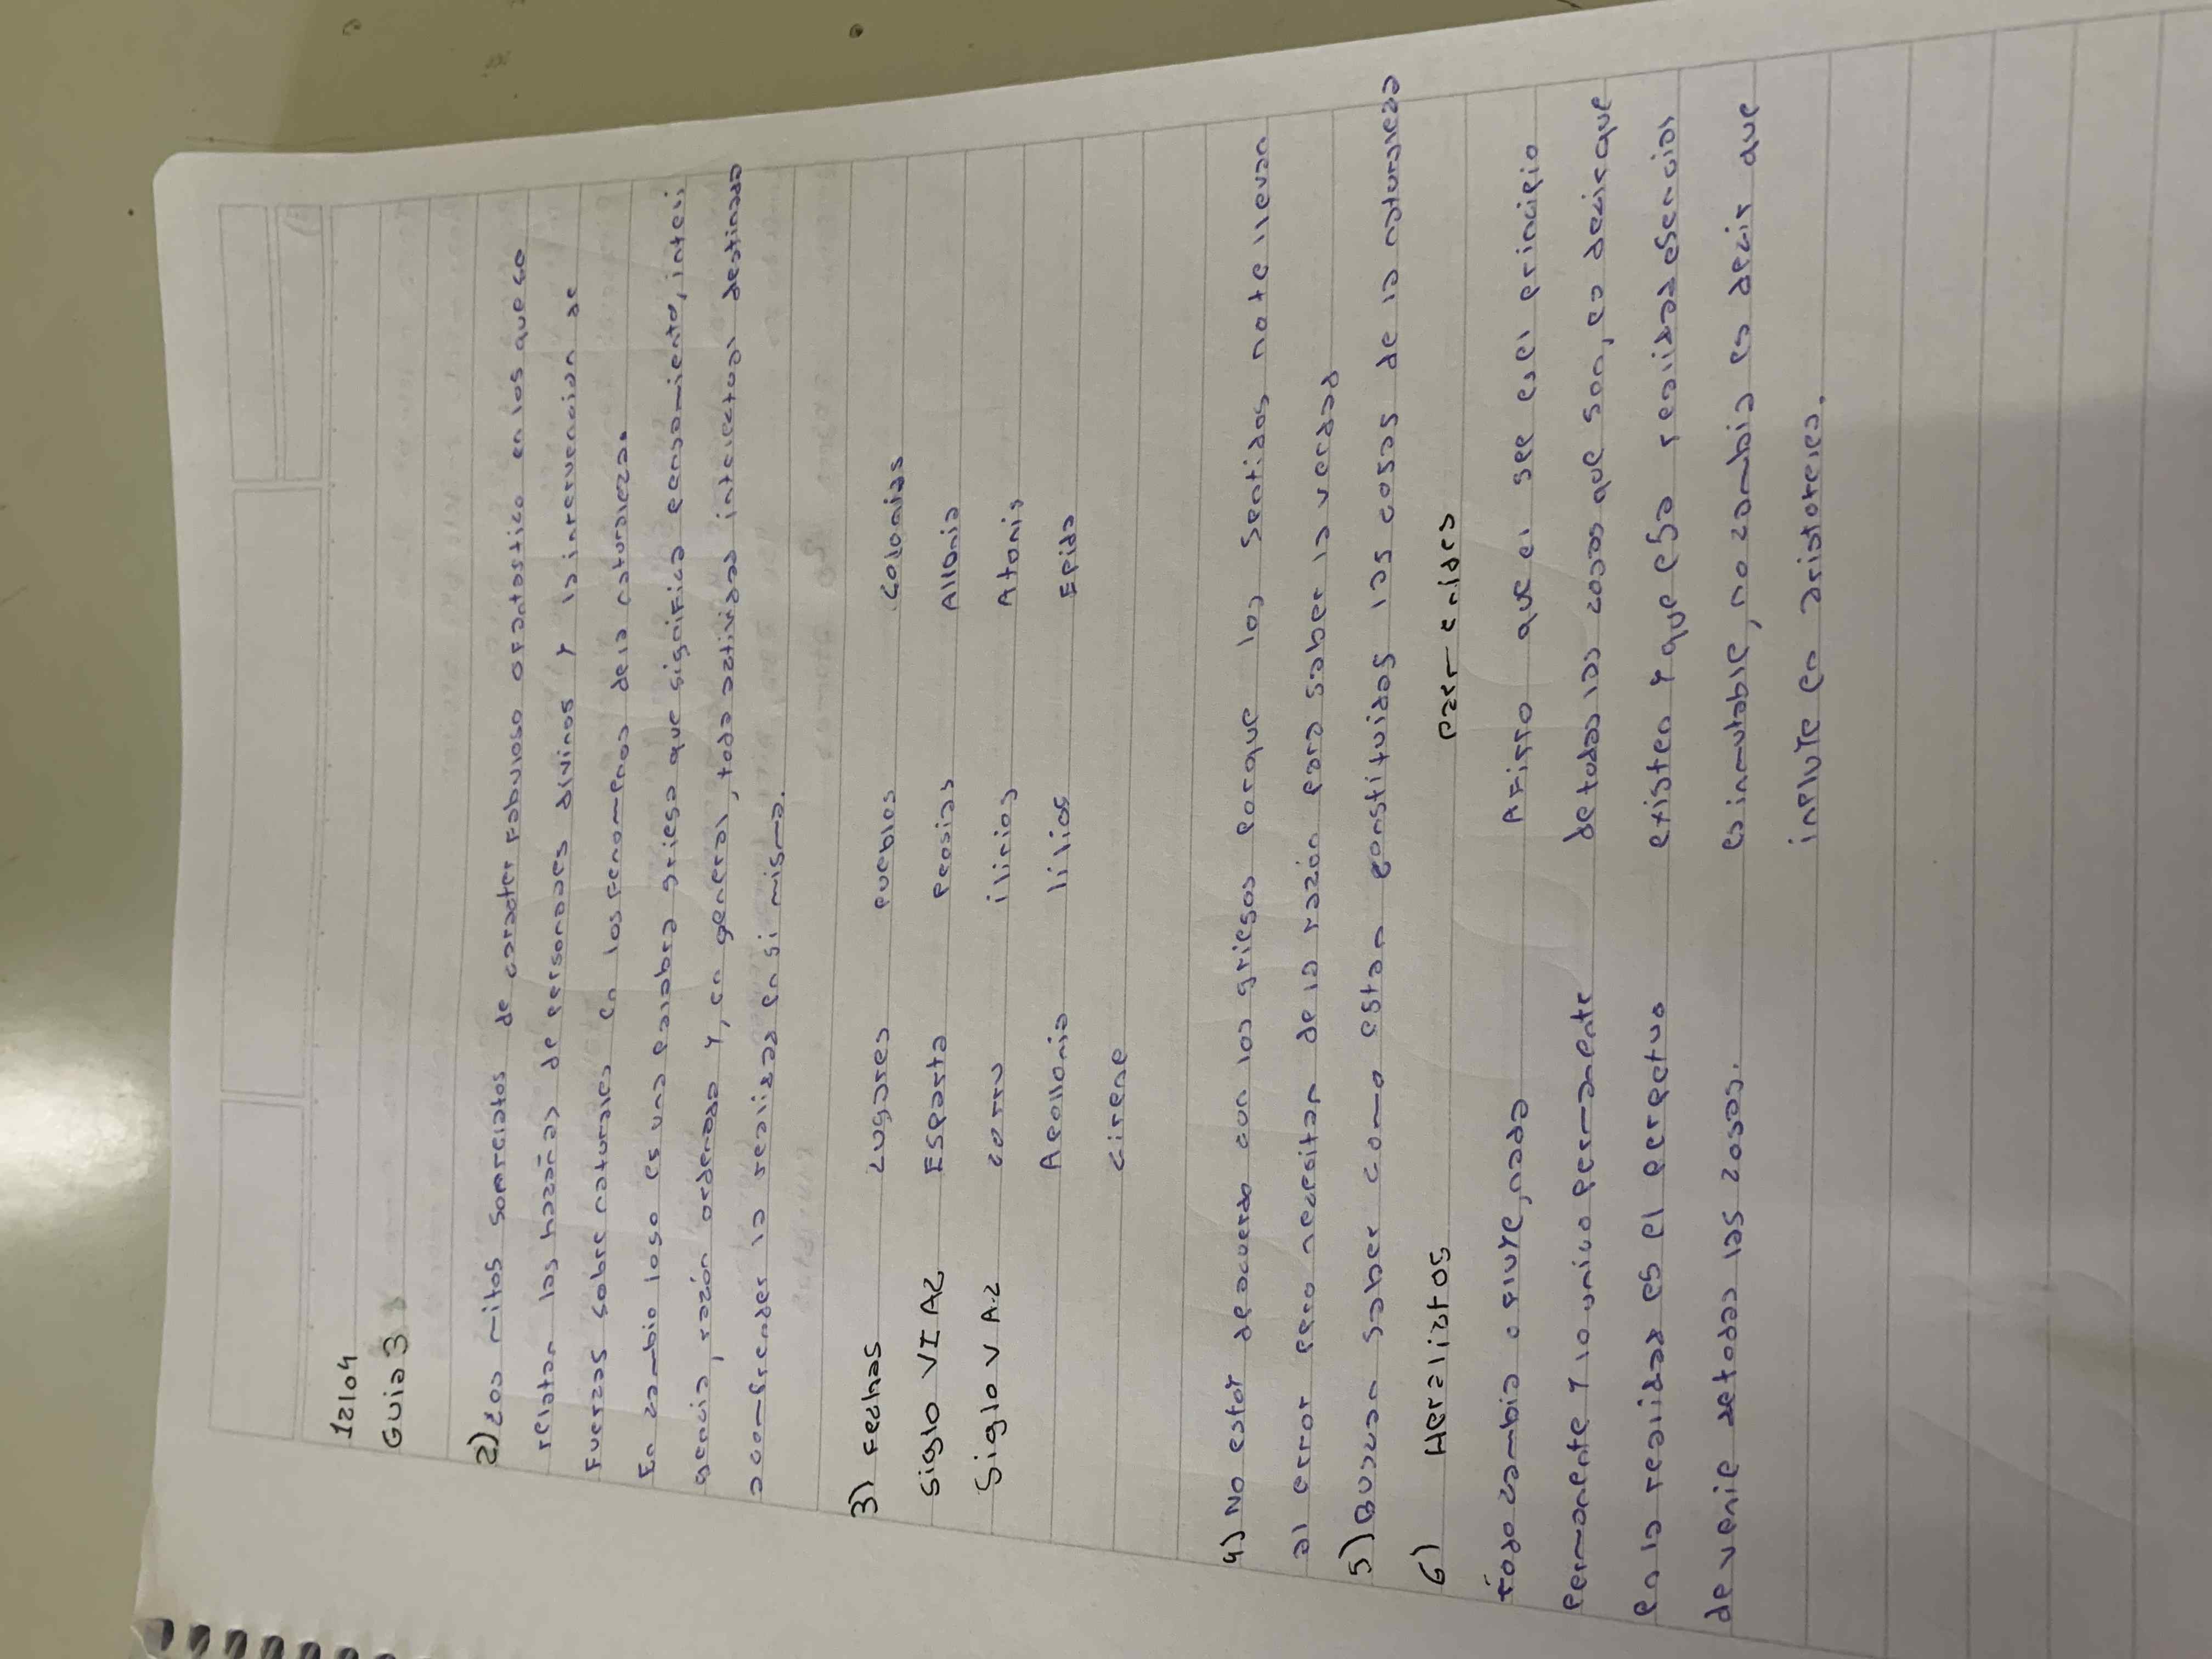 12/04
Guia 3
2) Los mitos son relatos de caracter fabuloso o fantastico en los que se
relatan las hazañas de personaces divinos y la intervencion de
Fuerzas sobre naturales en los fenomenos de la naturaleza.
En cambio logo es una palabra griega que significa pensamiento, inteli
gencia, razón ordenada y, en general, toda actividad intelectual destinada
a comprender la realidad en si misma.
3) Fechas Lugares pueblos Colonias
Siglo VI AC Esparta peosias Allonia
Siglo V A.C corru ilirios Atonis
Apollonia lilios Epida
Cirene
4) No estoy deacuerdo con los griegos porque los sentidos no te llevan
al error pero necesitan de la razón para saber la verdad
5) Buscan saber como estan constituidas las cosas de la naturaleza
6) Heraclitos parmenides
todo cambia o fluye, nada Afirro que el see es el principio
permanente y lo unico permanente detodas las cosas que son, es decir, que
en la realidad es el perpetuo existen y que esa realidad esencial
devenir detodas las cosas. es inmutable, no cambia es dezir que
influye en aristoteles.